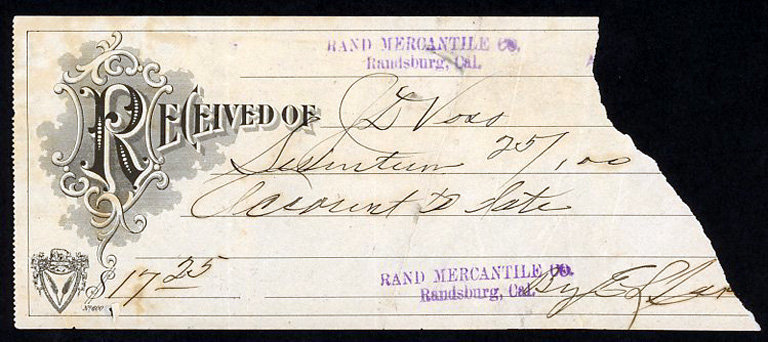 RAND MERCANTILE CO.
Randsburg, Cal.
RECEIVED OF J D Voss
Seventeen 25/100
Account to date
$ 17 25
RAND MERCANTILE CO.
Randsburg, Cal.
By E L